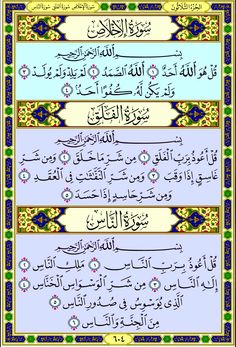 سُورَةُ الإِخْلَاصِ
بِسْمِ اللَّهِ الرَّحْمَٰنِ الرَّحِيمِ
قُلْ هُوَ اللَّهُ أَحَدٌ ١ اللَّهُ الصَّمَدُ ٢ لَمْ يَلِدْ وَلَمْ يُولَدْ ٣
وَلَمْ يَكُن لَّهُ كُفُوًا أَحَدٌ ٤
سُورَةُ الْفَلَقِ
بِسْمِ اللَّهِ الرَّحْمَٰنِ الرَّحِيمِ
قُلْ أَعُوذُ بِرَبِّ الْفَلَقِ ١ مِن شَرِّ مَا خَلَقَ ٢ وَمِن شَرِّ
غَاسِقٍ إِذَا وَقَبَ ٣ وَمِن شَرِّ النَّفَّٰثَٰتِ فِي الْعُقَدِ ٤
وَمِن شَرِّ حَاسِدٍ إِذَا حَسَدَ ٥
سُورَةُ النَّاسِ
بِسْمِ اللَّهِ الرَّحْمَٰنِ الرَّحِيمِ
قُلْ أَعُوذُ بِرَبِّ النَّاسِ ١ مَلِكِ النَّاسِ ٢
إِلَٰهِ النَّاسِ ٣ مِن شَرِّ الْوَسْوَاسِ الْخَنَّاسِ ٤
الَّذِي يُوَسْوِسُ فِي صُدُورِ النَّاسِ ٥
مِنَ الْجِنَّةِ وَالنَّاسِ ٦
٦٠٤